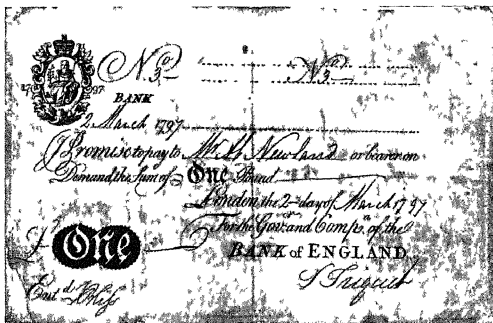 No. 3 No. 3
17 97
BANK
2 March 1797
I Promise to pay to Mr. A. Newland or bearer on
Demand the Sum of One Pound
London the 2nd day of March 1797
For the Gov. and Comp.a of the
£ One BANK of ENGLAND
Ent.d